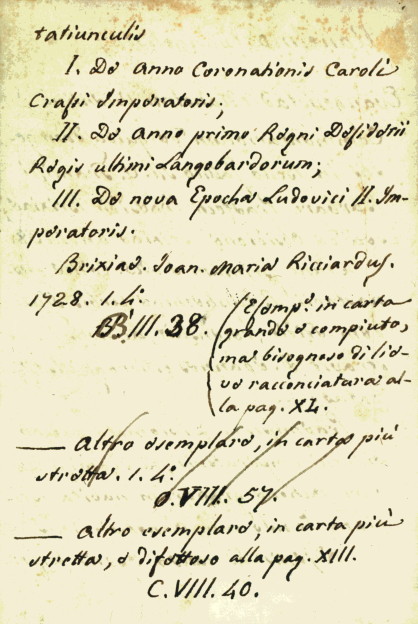 tatiunculis
I. De Anno Coronationis Caroli
Crassi Imperatoris;
II. De Anno primo Regni Desiderii
Regis ultimi Langobardorum;
III. De nova Epocha Ludovici II. Im-
peratoris.
Brixiae. Ioan. Maria Ricciardus.
1728. 1. 4.º
B.III. 38.
(Esemp.º in carta
grande e compiuto,
ma bisognoso di lie-
ve racconciatura al-
la pag. XL.
— Altro esemplare, in carta più
stretta. 1. 4.º
O.VIII. 57.
— Altro esemplare, in carta più
stretta, e difettoso alla pag. XIII.
C.VIII. 40.